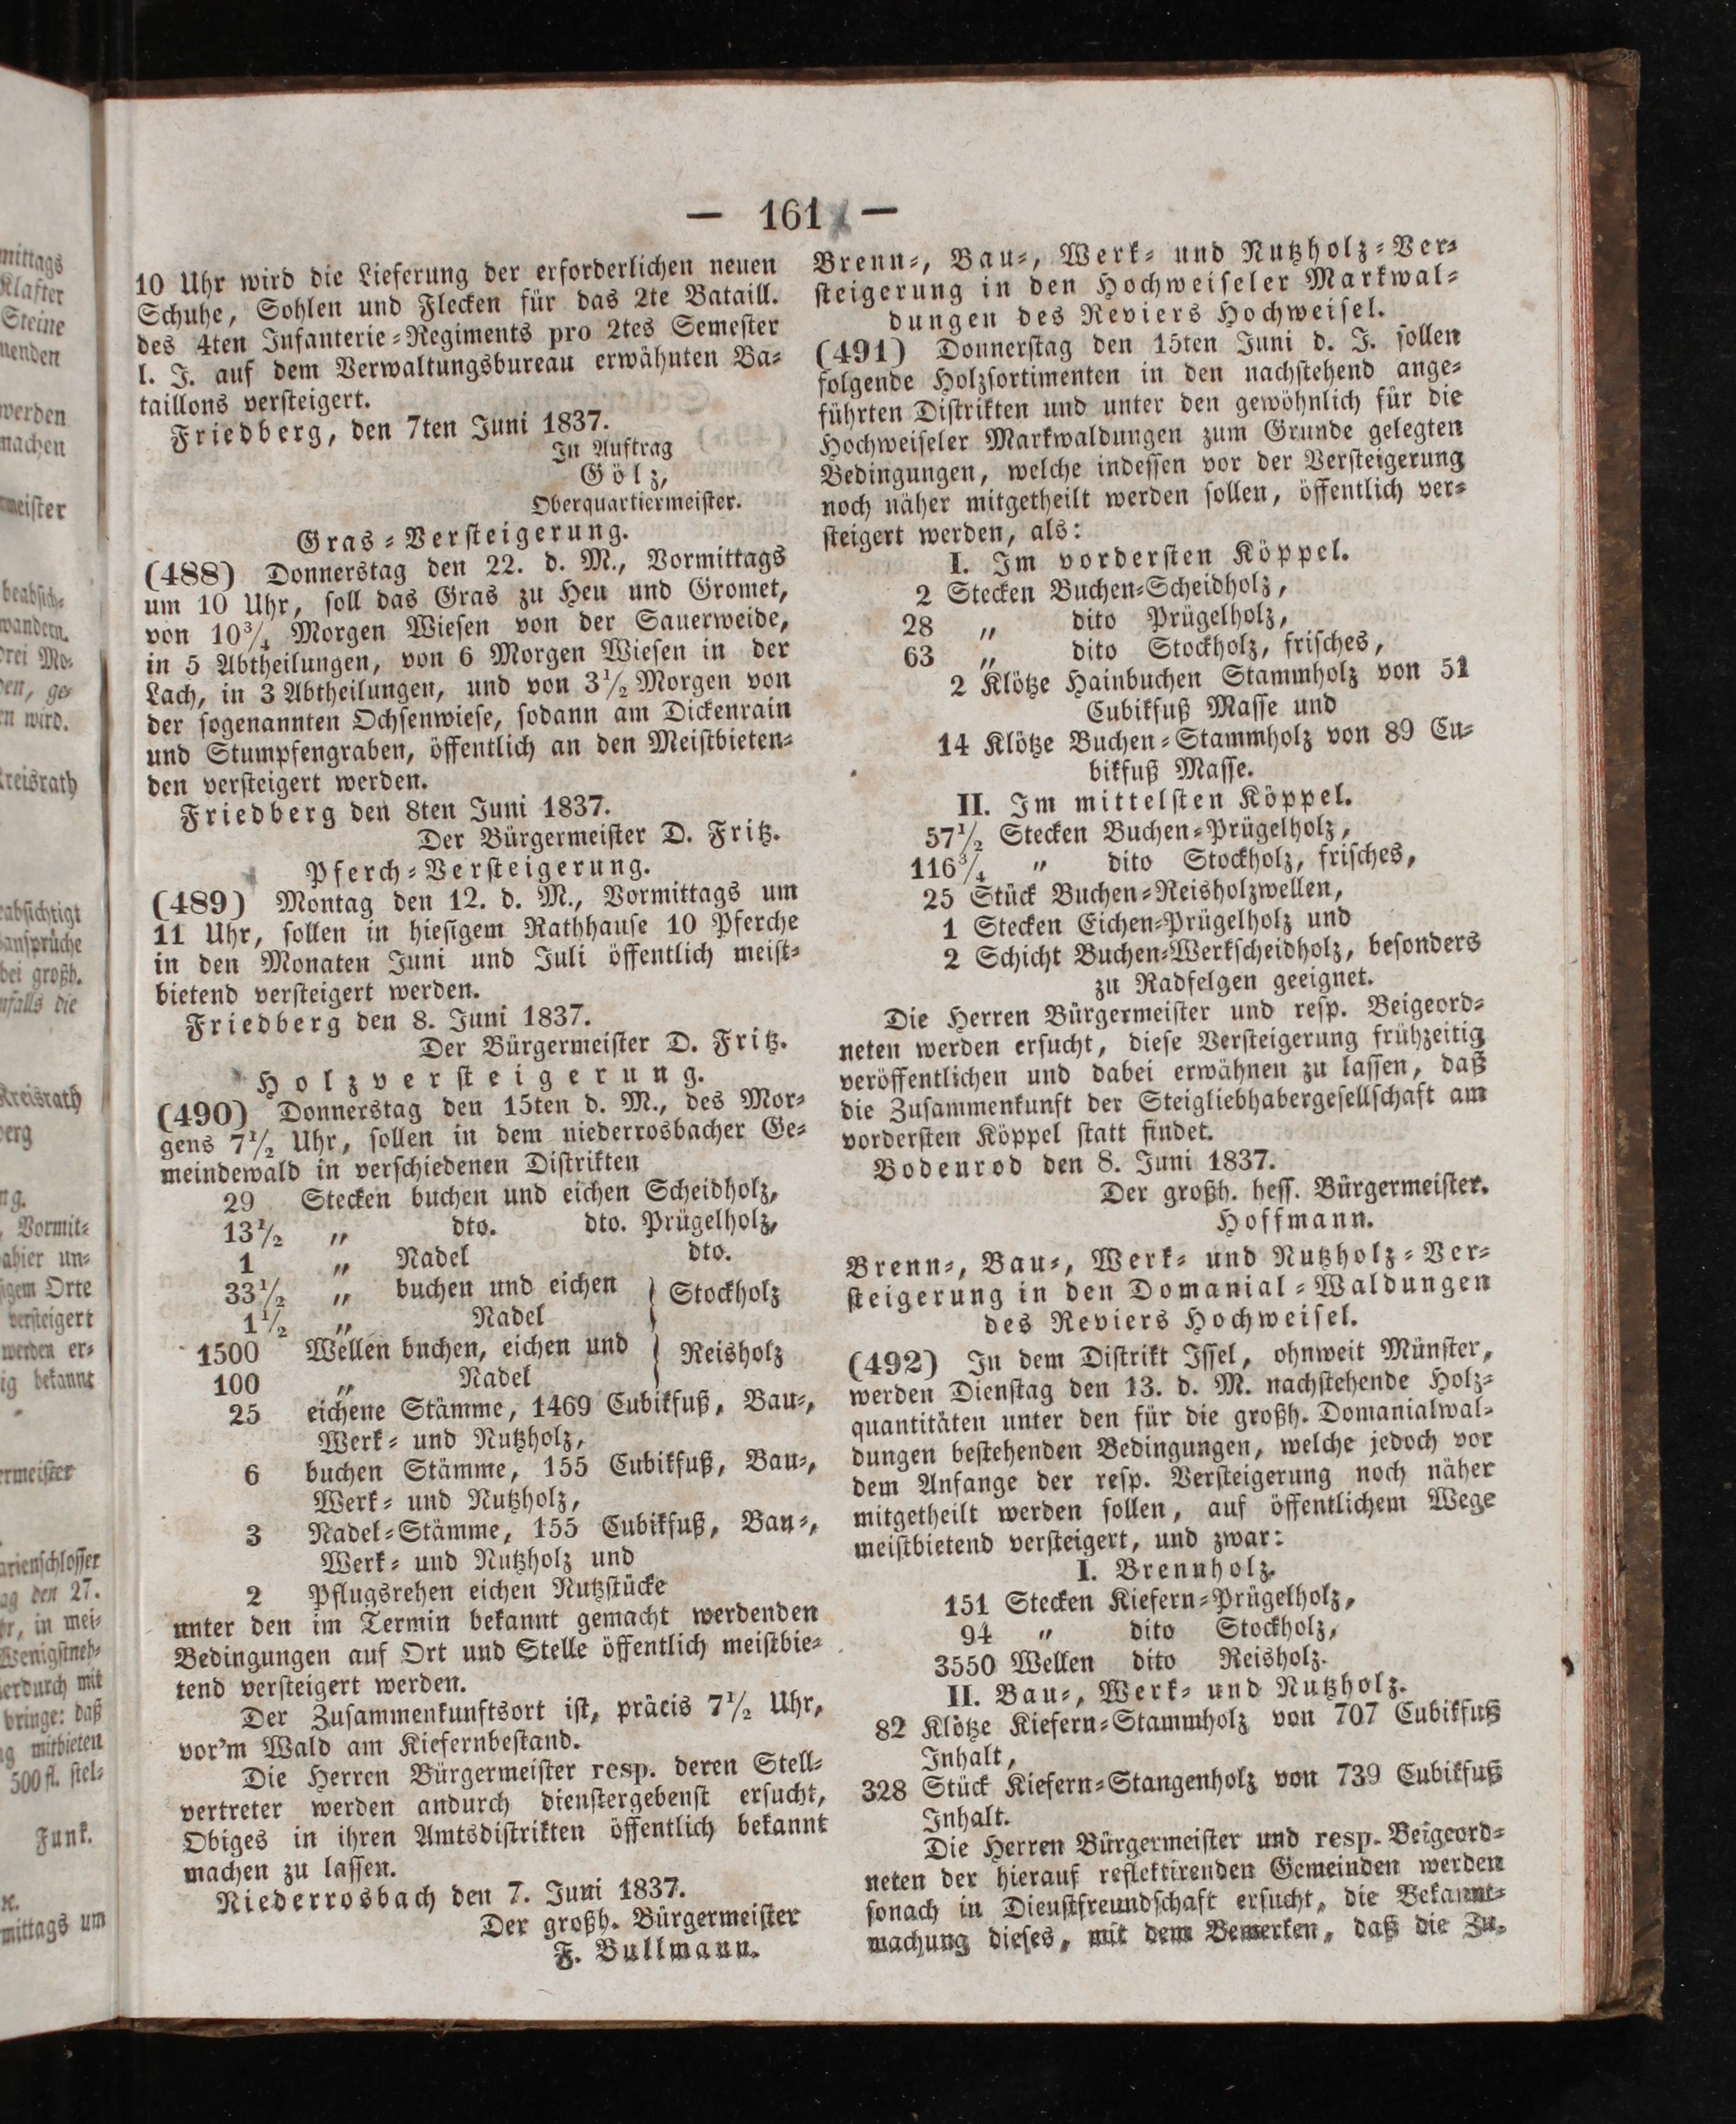 — 161 —
10 Uhr wird die Lieferung der erforderlichen neuen
Schuhe, Sohlen und Flecken für das 2te Bataill.
des 4ten Infanterie-Regiments pro 2tes Semester
l. J. auf dem Verwaltungsbureau erwähnten Ba-
taillons versteigert.
Friedberg, den 7ten Juni 1837.
In Auftrag
Gölz,
Oberquartiermeister.
Gras-Versteigerung.
(488) Donnerstag den 22. d. M., Vormittags
um 10 Uhr, soll das Gras zu Heu und Gromet,
von 10¾ Morgen Wiesen von der Sauerweide,
in 5 Abtheilungen, von 6 Morgen Wiesen in der
Lach, in 3 Abtheilungen, und von 3½ Morgen von
der sogenannten Ochsenwiese, sodann am Dickenrain
und Stumpfengraben, öffentlich an den Meistbieten-
den versteigert werden.
Friedberg den 8ten Juni 1837.
Der Bürgermeister D. Fritz.
Pferch-Versteigerung.
(489) Montag den 12. d. M., Vormittags um
11 Uhr, sollen in hiesigem Rathhause 10 Pferche
in den Monaten Juni und Juli öffentlich meist-
bietend versteigert werden.
Friedberg den 8. Juni 1837.
Der Bürgermeister D. Fritz.
Holzversteigerung.
(490) Donnerstag den 15ten d. M., des Mor-
gens 7½ Uhr, sollen in dem niederrosbacher Ge-
meindewald in verschiedenen Distrikten
29 Stecken buchen und eichen Scheidholz,
13½ „ dto. dto. Prügelholz,
1 „ Nadel dto.
33½ „ buchen und eichen } Stockholz
1½ „ Nadel
1500 Wellen buchen, eichen und } Reisholz
100 „ Nadel
25 eichene Stämme, 1469 Cubikfuß, Bau-,
Werk- und Nutzholz,
6 buchen Stämme, 155 Cubikfuß, Bau-,
Werk- und Nutzholz,
3 Nadel-Stämme, 155 Cubikfuß, Bau-,
Werk- und Nutzholz und
2 Pflugsrehen eichen Nutzstücke
unter den im Termin bekannt gemacht werdenden
Bedingungen auf Ort und Stelle öffentlich meistbie-
tend versteigert werden.
Der Zusammenkunftsort ist, präcis 7½ Uhr,
vor'm Wald am Kiefernbestand.
Die Herren Bürgermeister resp. deren Stell-
vertreter werden andurch dienstergebenst ersucht,
Obiges in ihren Amtsdistrikten öffentlich bekannt
machen zu lassen.
Niederrosbach den 7. Juni 1837.
Der großh. Bürgermeister
F. Bullmann.
Brenn-, Bau-, Werk- und Nutzholz-Ver-
steigerung in den Hochweiseler Markwal-
dungen des Reviers Hochweisel.
(491) Donnerstag den 15ten Juni d. J. sollen
folgende Holzsortimenten in den nachstehend ange-
führten Distrikten und unter den gewöhnlich für die
Hochweiseler Markwaldungen zum Grunde gelegten
Bedingungen, welche indessen vor der Versteigerung
noch näher mitgetheilt werden sollen, öffentlich ver-
steigert werden, als:
I. Im vordersten Köppel.
2 Stecken Buchen-Scheidholz,
28 „ dito Prügelholz,
63 „ dito Stockholz, frisches,
2 Klötze Hainbuchen Stammholz von 51
Cubikfuß Masse und
14 Klötze Buchen-Stammholz von 89 Cu-
bikfuß Masse.
II. Im mittelsten Köppel.
57½ Stecken Buchen-Prügelholz,
116¾ „ dito Stockholz, frisches,
25 Stück Buchen-Reisholzwellen,
1 Stecken Eichen-Prügelholz und
2 Schicht Buchen-Werkscheidholz, besonders
zu Radfelgen geeignet.
Die Herren Bürgermeister und resp. Beigeord-
neten werden ersucht, diese Versteigerung frühzeitig
veröffentlichen und dabei erwähnen zu lassen, daß
die Zusammenkunft der Steigliebhabergesellschaft am
vordersten Köppel statt findet.
Bodenrod den 8. Juni 1837.
Der großh. hess. Bürgermeister.
Hoffmann.
Brenn-, Bau-, Werk- und Nutzholz-Ver-
steigerung in den Domanial-Waldungen
des Reviers Hochweisel.
(492) In dem Distrikt Issel, ohnweit Münster,
werden Dienstag den 13. d. M. nachstehende Holz-
quantitäten unter den für die großh. Domanialwal-
dungen bestehenden Bedingungen, welche jedoch vor
dem Anfange der resp. Versteigerung noch näher
mitgetheilt werden sollen, auf öffentlichem Wege
meistbietend versteigert, und zwar:
I. Brennholz.
151 Stecken Kiefern-Prügelholz,
94 „ dito Stockholz,
3550 Wellen dito Reisholz.
II. Bau-, Werk- und Nutzholz.
82 Klötze Kiefern-Stammholz von 707 Cubikfuß
Inhalt,
328 Stück Kiefern-Stangenholz von 739 Cubikfuß
Inhalt.
Die Herren Bürgermeister und resp. Beigeord-
neten der hierauf reflektirenden Gemeinden werden
sonach in Dienstfreundschaft ersucht, die Bekannt-
machung dieses, mit dem Bemerken, daß die Zu-